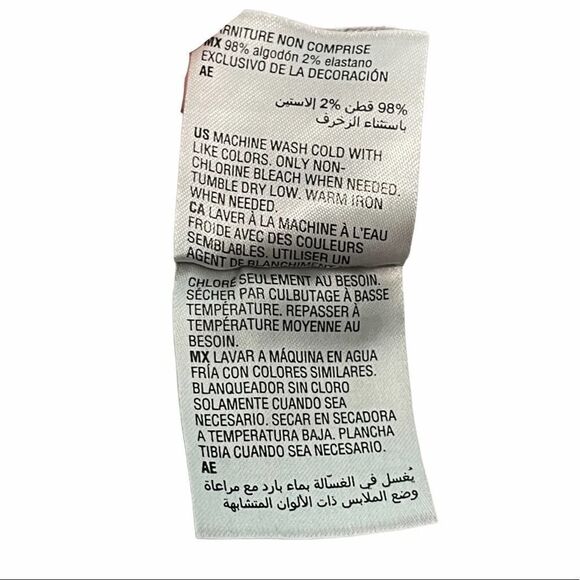 ARNITURE NON COMPRISE
MX 98% algodón 2% elastano
EXCLUSIVO DE LA DECORACIÓN
AE
98% قطن 2% إلاستين
باستثناء الزخرف
US MACHINE WASH COLD WITH
LIKE COLORS. ONLY NON-
CHLORINE BLEACH WHEN NEEDED.
TUMBLE DRY LOW. WARM IRON
WHEN NEEDED.
CA LAVER À LA MACHINE À L'EAU
FROIDE AVEC DES COULEURS
SEMBLABLES. UTILISER UN
AGENT DE BLANCHIMENT
CHLORE SEULEMENT AU BESOIN.
SÉCHER PAR CULBUTAGE À BASSE
TEMPÉRATURE. REPASSER À
TEMPÉRATURE MOYENNE AU
BESOIN.
MX LAVAR A MÁQUINA EN AGUA
FRÍA CON COLORES SIMILARES.
BLANQUEADOR SIN CLORO
SOLAMENTE CUANDO SEA
NECESARIO. SECAR EN SECADORA
A TEMPERATURA BAJA. PLANCHA
TIBIA CUANDO SEA NECESARIO.
AE
يُغسل في الغسّالة بماء بارد مع مراعاة
وضع الملابس ذات الألوان المتشابهة